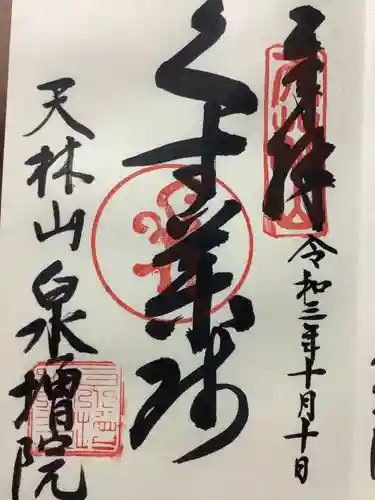 奉拝
令和三年十月十日
くす薬師
天林山
泉増院